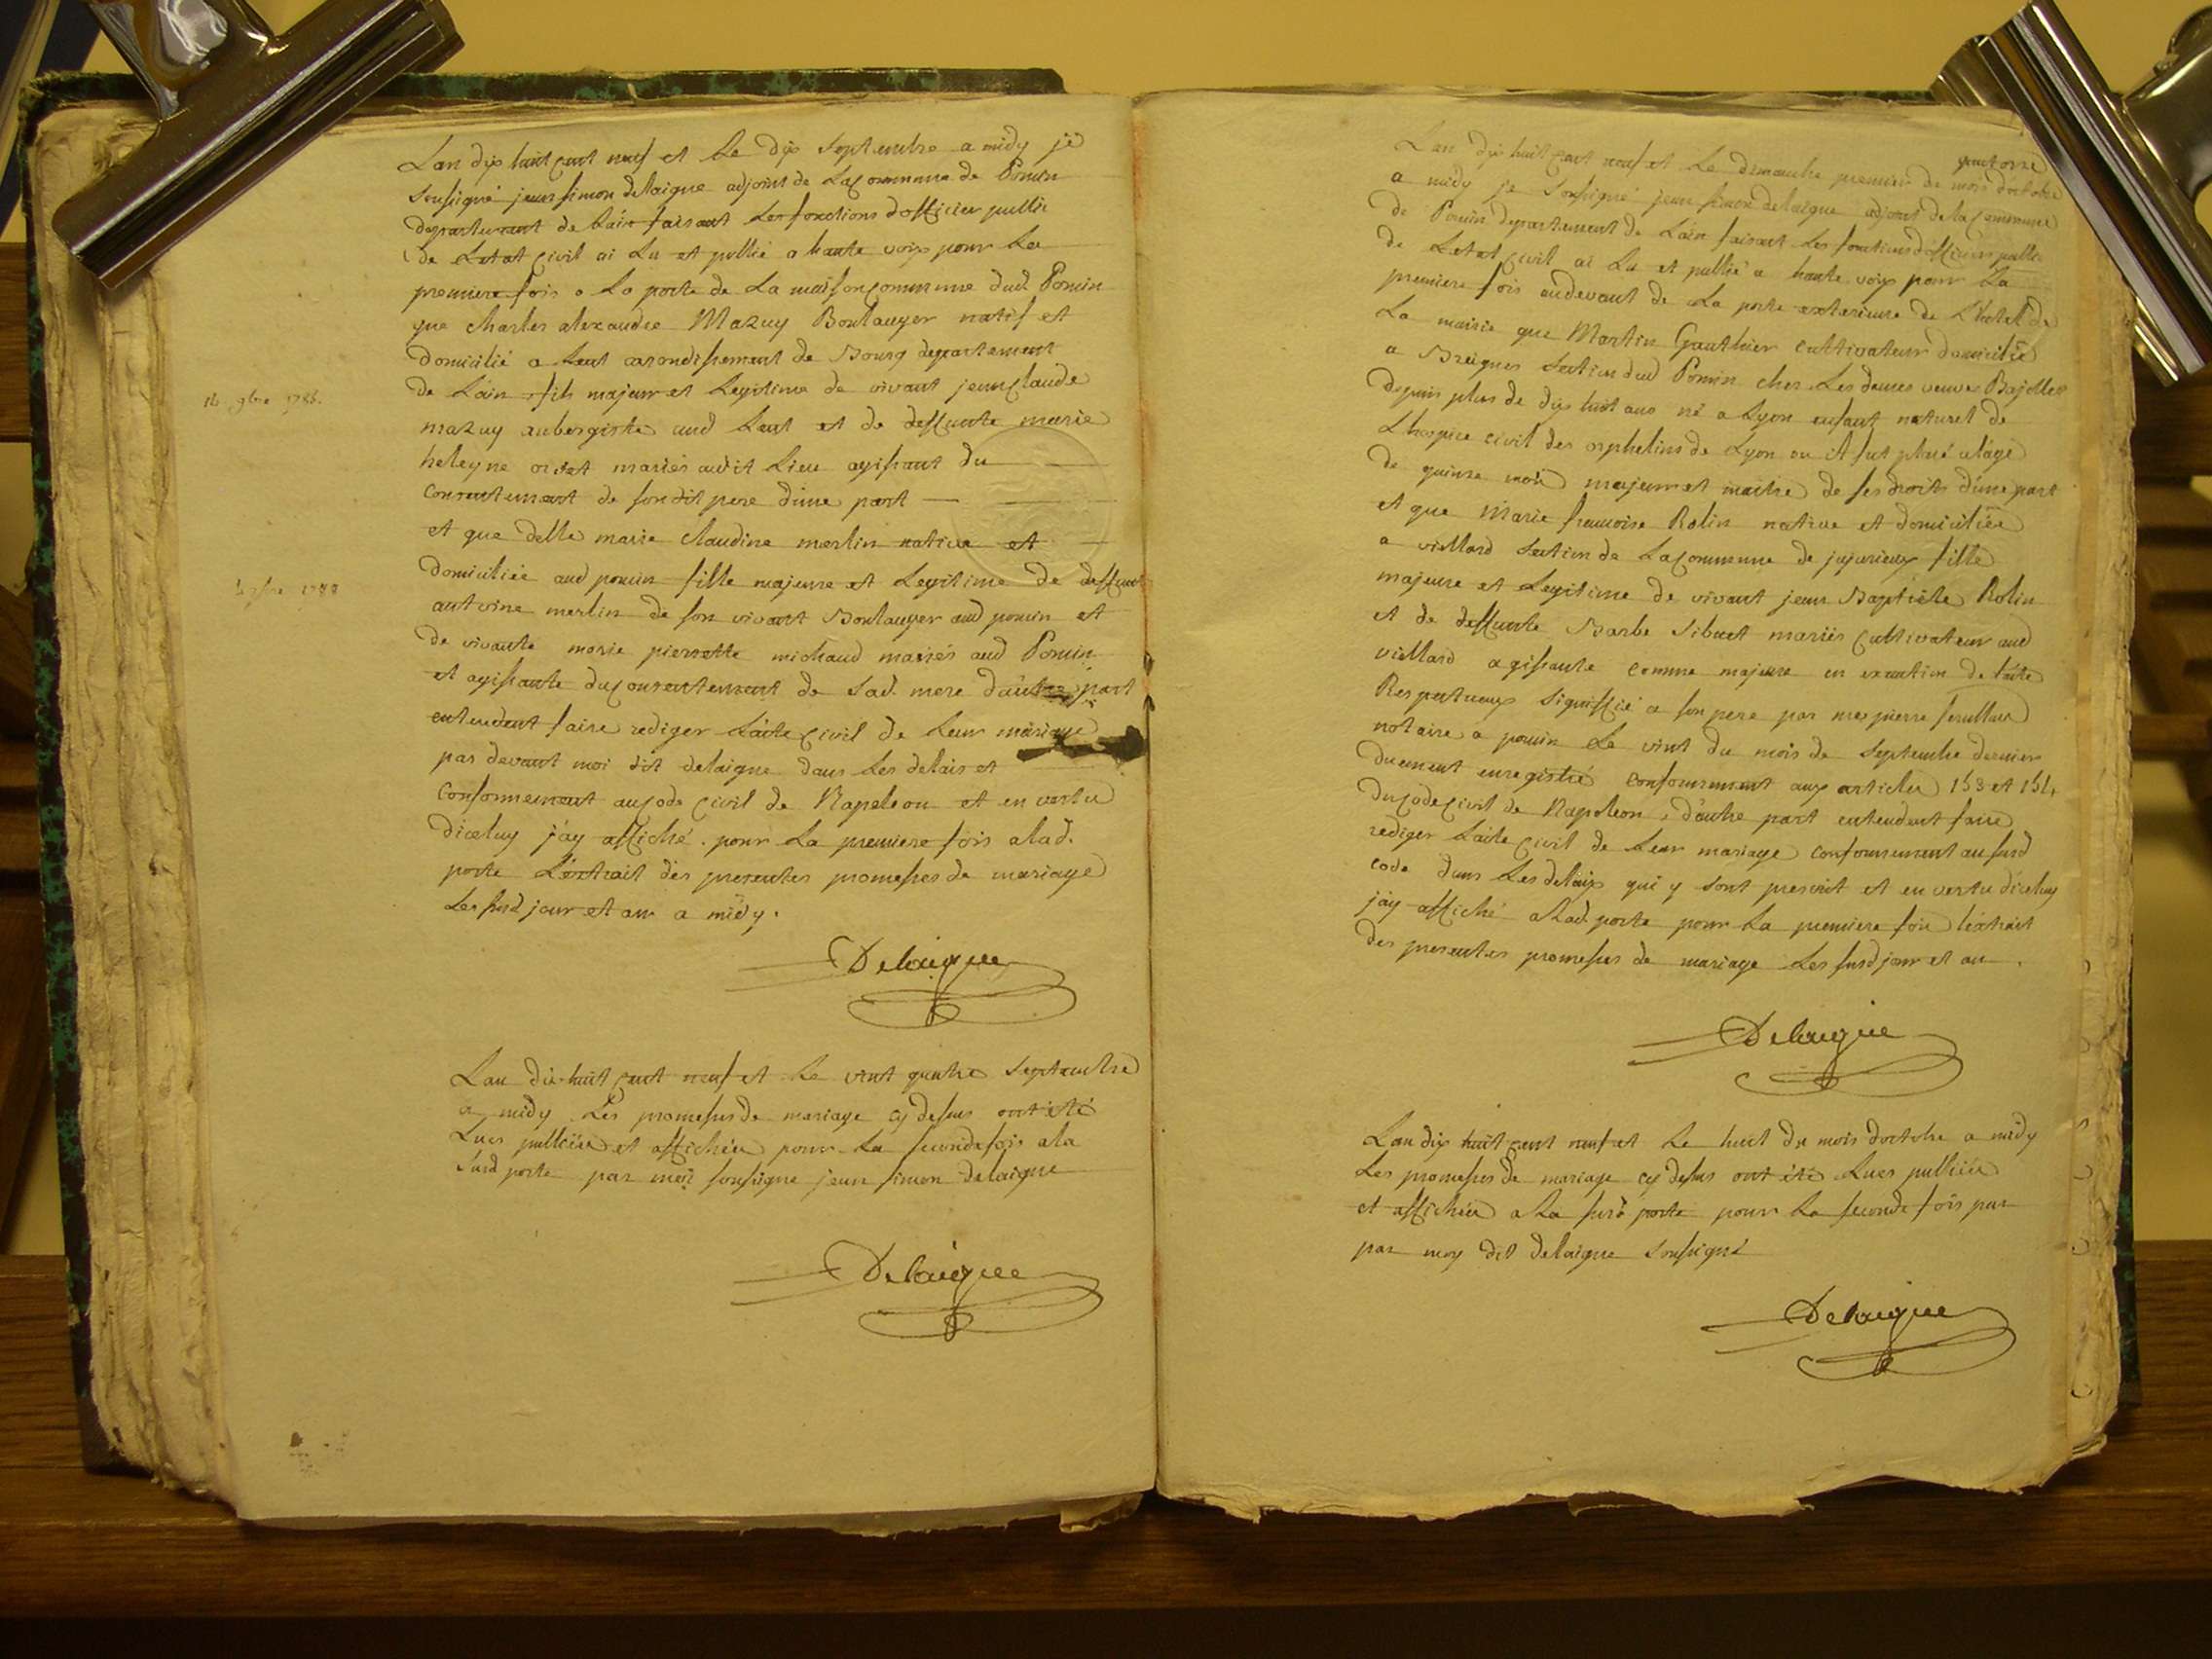 Lan dix huit cent neuf et le dix septembre a midy je
soussigné jean simon delaigne adjoint de la commune de Poncin
departement de l'ain faisant les fonctions dofficier public
de Letat civil ai lu et publié a haute voix pour la
premiere fois a la porte de la maison commune dud Poncin
que charles alexandre Mazuy Boulanger natif et
domicilié a Lent arondissement de Bourg departement
de Lain fils majeur et Legitime de vivant jean claude
16 9bre 1786.
mazuy aubergiste aud Lent et de deffunte marie
heleyne mariés audit Lieu agissant du
consentement de son dit pere d'une part
et que delle marie claudine merlin native et
domiciliée aud poncin fille majeure et Legitime de deffunt
antoine merlin de son vivant Boulanger aud poncin et
de vivante marie pierrette michaud mariés aud Poncin
et agissante du consentement de sad. mere d'autre part
entendent faire rediger L'acte civil de leur mariage
par devant moi dit delaigne dans les delais et
conformement au code civil de Napoleon et en vertu
diceluy j'ay affiché pour la premiere fois alad.
porte L'extrait des presentes promesses de mariage
Les susd jour et an a midy.
Delaigue
Lan dix huit cent neuf et le vint quatre septembre
a midy Les promesses de mariage cy dessus ont été
Lues publiées et affichées pour la seconde fois ala
susd porte par moi soussigné jean simon delaigue
Delaigue
Lan dix huit cent neuf et le dimanche premier de mois doctobre
a midy je soussigné jean simon delaigue adjoint de la commune
de Poncin departement de Lain faisant les fonctions dofficier public
de Letat civil ai lu et publié a haute voix pour la
premiere fois audevant de la porte exterieure de L'hotel de
La mairie que Martin Gauthier cultivateur domicilié
a Breignes section dud Poncin chez les dames veuves Bajolles
depuis plus de dix huit ans né a Lyon enfant naturel de
L'hospice civil des orphelins de Lyon ou il fut placé a l'age
de quinze mois majeur et maitre de ses droits d'une part
et que Marie francoise Rolin native et domiciliée
a vieillard section de la commune de jujurieux fille
majeure et Legitime de vivant jean Baptiste Rolin
et de deffunte Barbe Sibuet mariés cultivateur aud
vieillard agissante comme majeure en execution de l'acte
Respectueux signiffié a son pere par me pierre
notaire a poncin le vint du mois de septembre dernier
duement enregistré conformement aux articles 153 et 154
du code civil de Napoleon, d'autre part entendent faire
rediger L'acte civil de leur mariage conformement au susd
code dans les delaix qui y sont prescrit et en vertu diceluy
j'ay affiché alad. porte pour la premiere fois l'extrait
des presentes promesses de mariage les susd jour et an.
Delaigue
Lan dix huit cent neuf et le huit du mois doctobre a midy
Les promesses de mariage cy dessus ont été lues publiées
et affichées a la susd porte pour la seconde fois par
par moy dit delaigue soussigné
Delaigue